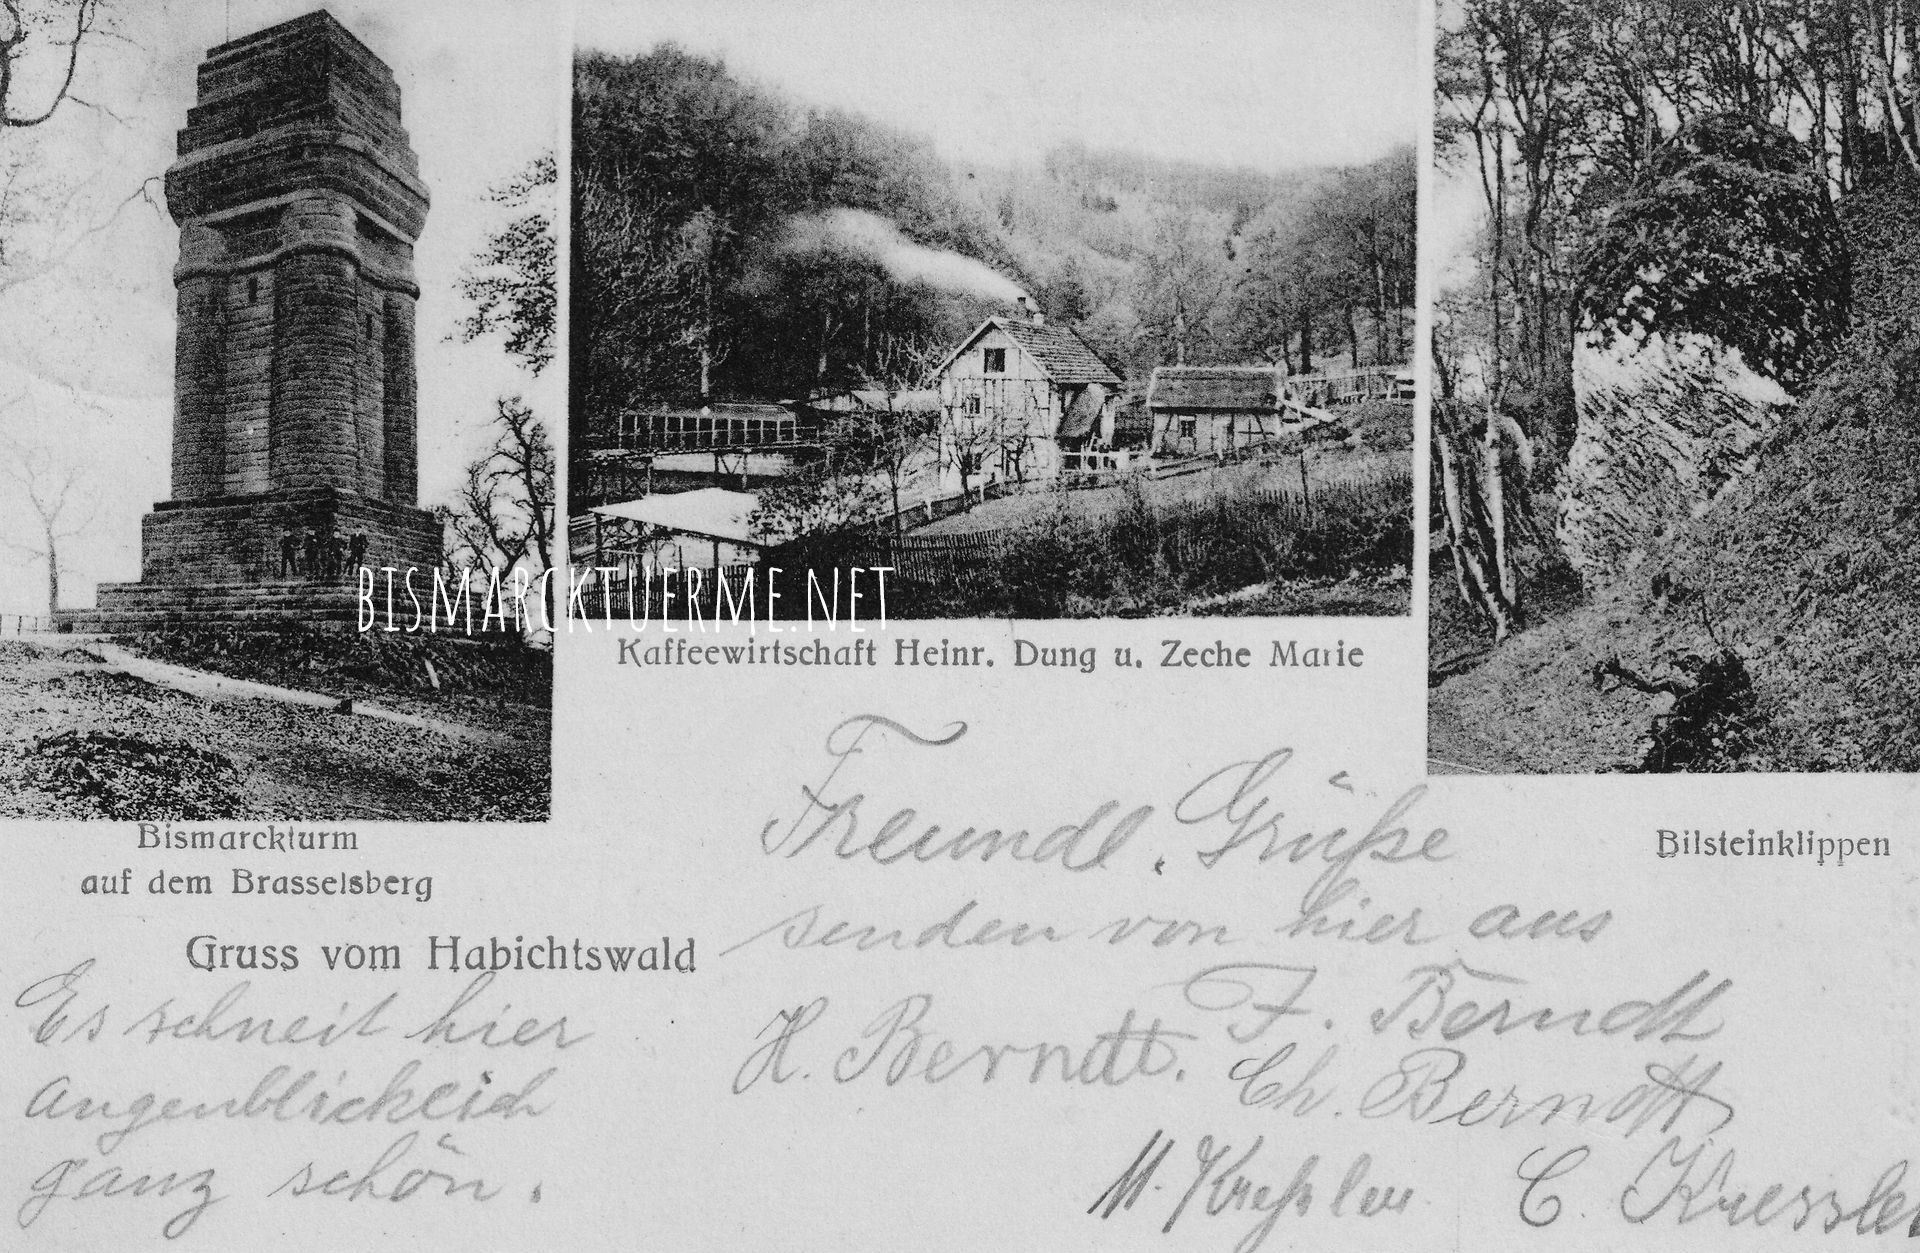 BISMARCKTUERME.NET
Kaffeewirtschaft Heinr. Dung u. Zeche Marie
Bismarckturm
auf dem Brasselsberg
Bilsteinklippen
Gruss vom Habichtswald
Freundl. Grüße
senden von hier aus
F. Berndt
H. Berndt.
Ch. Berndt
M. Kreßler
C. Kressler
Es schneit hier
augenblicklich
ganz schön.